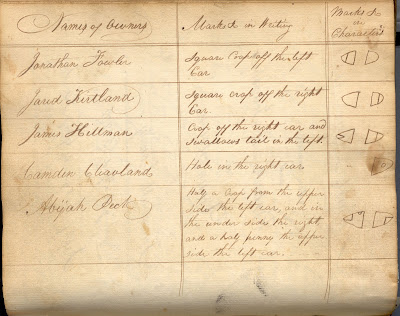 Names of Owners
Marked in Writing
Marked in Characters
Jonathan Fowler
Square Crop off the left
Ear
Jared Kirtland
Square crop off the right
Ear.
James Hillman
Crop off the right ear and
swallows tail in the left.
Camden Cleavland
Hole in the right ear
Abijah Peck
Half a Crop from the upper
side the left ear, and in
the under side the right
and a half penny the upper
side the left ear.